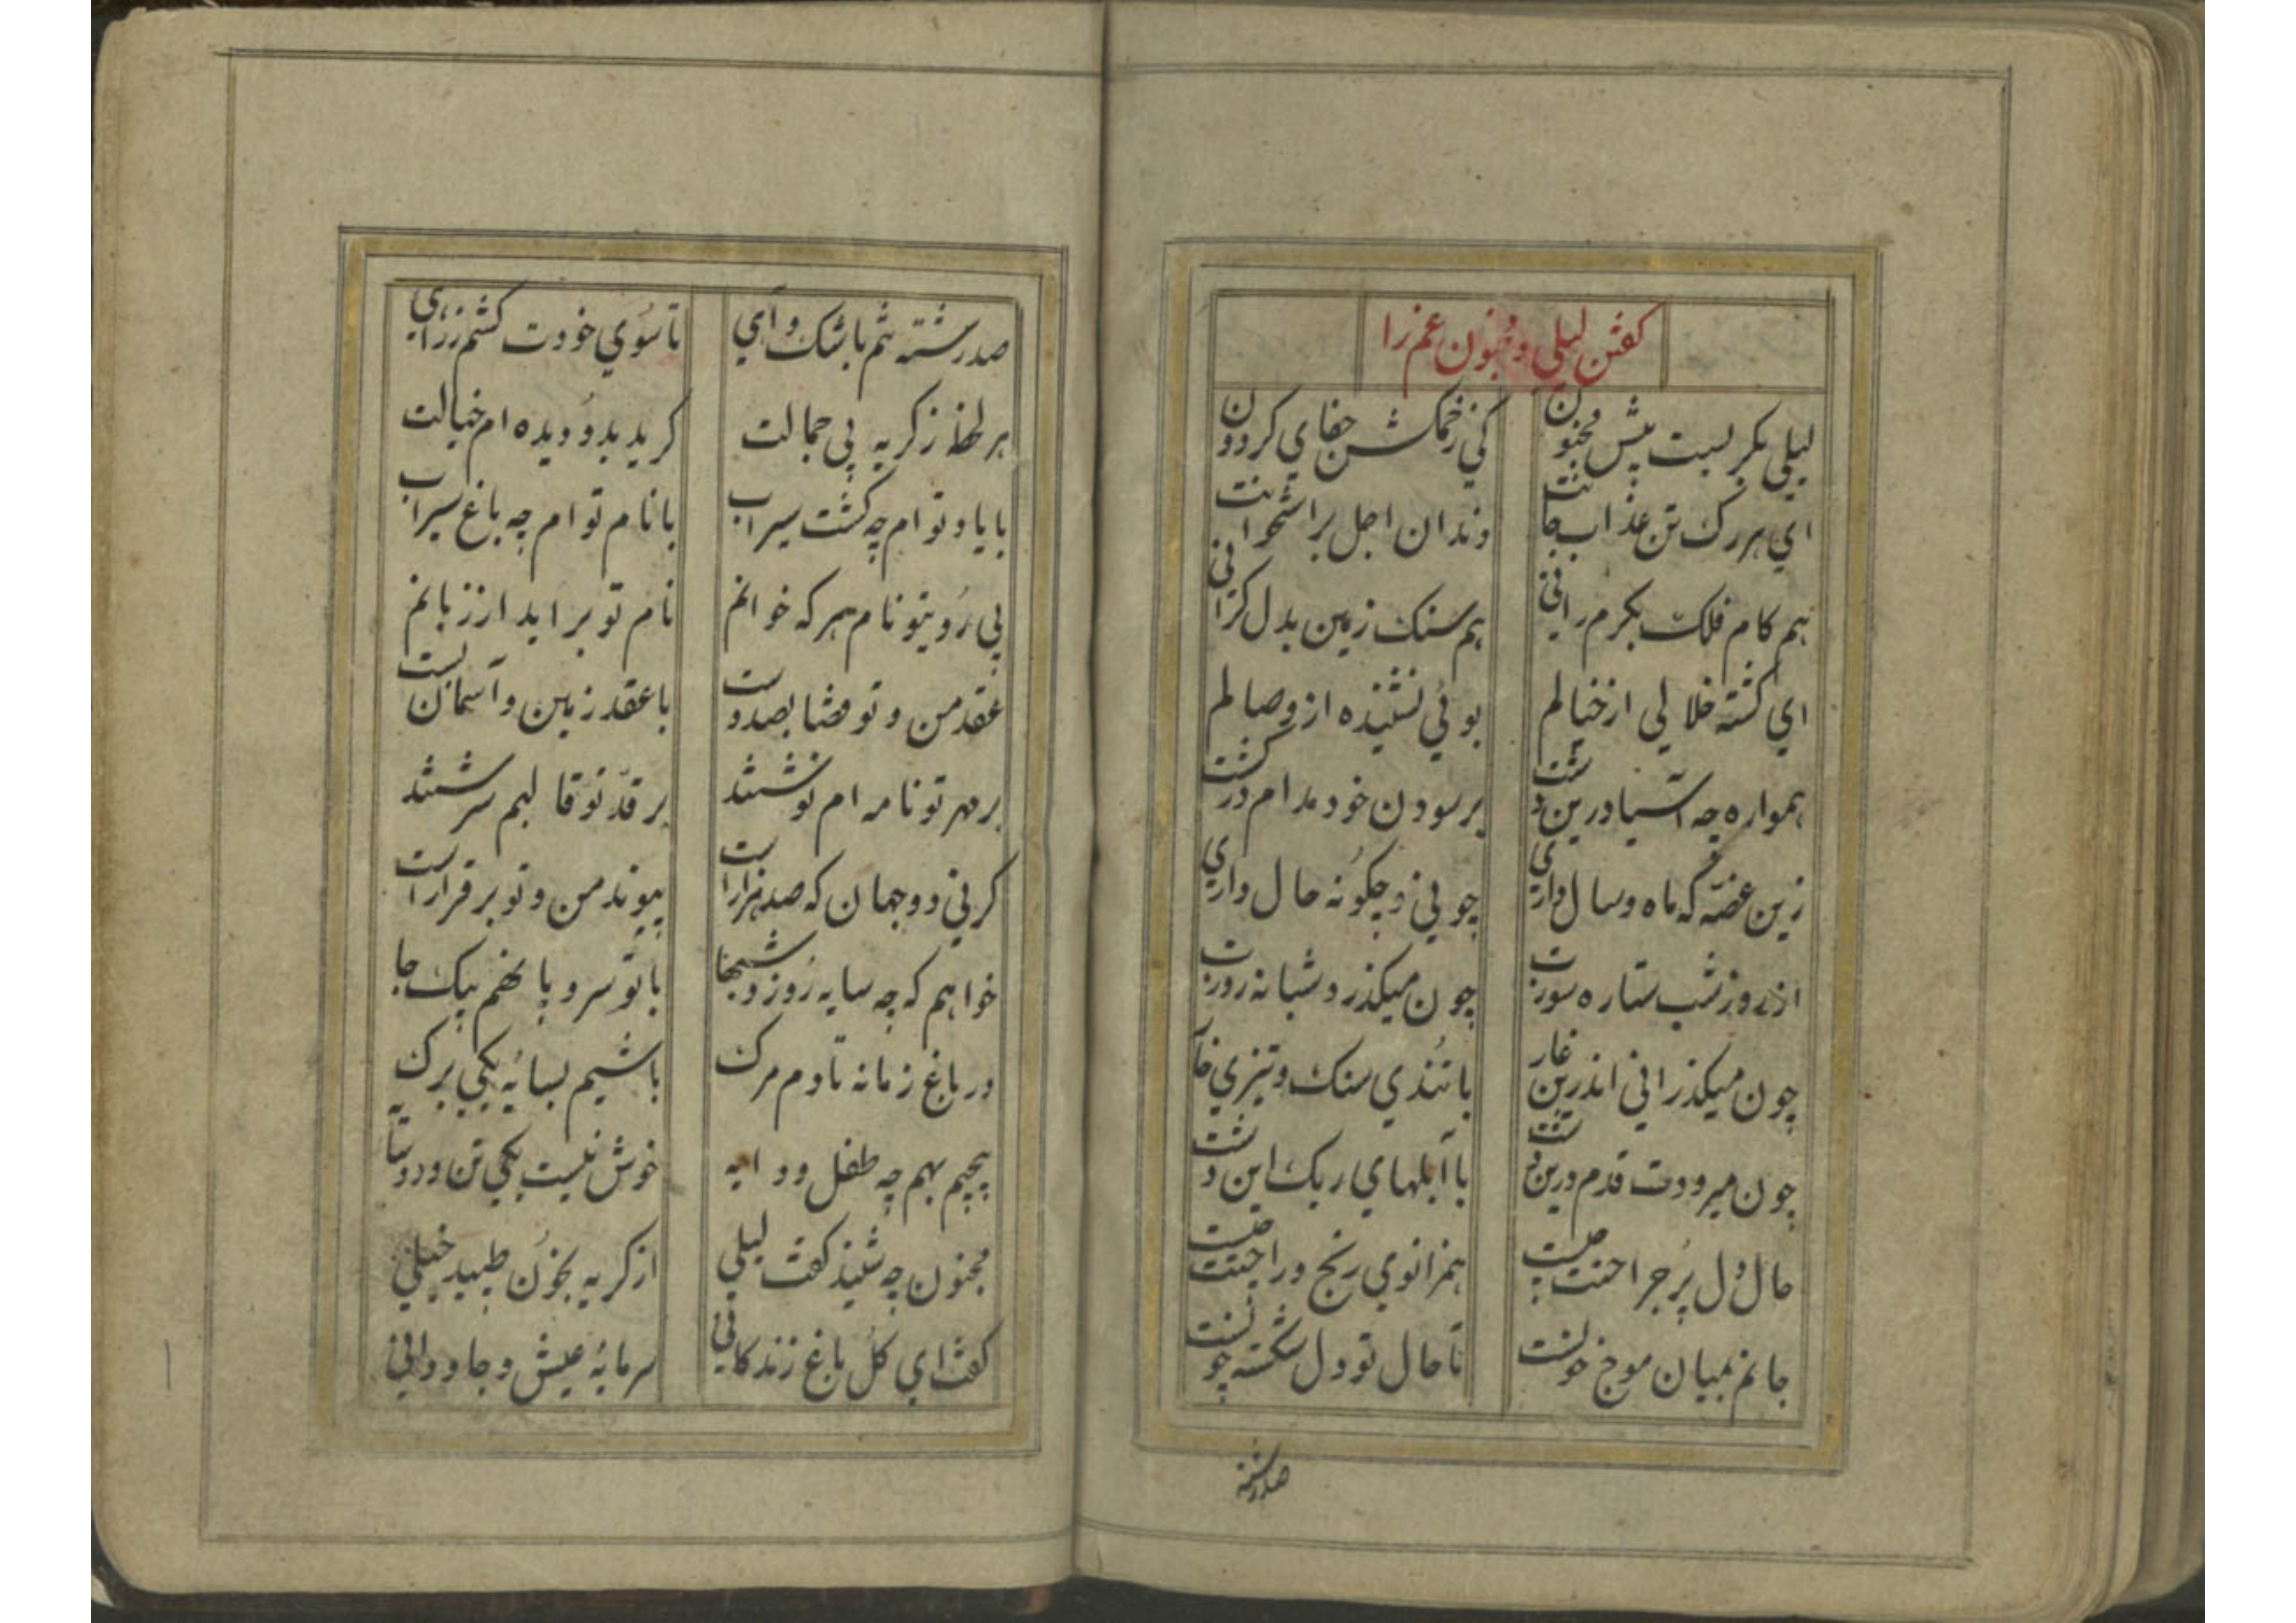 کفتن لیلی و مجنون غم را
لیلی بکریست پیش مجنون کی زخمکش جفای کردون
ای هر رک تن عذاب جانت دندان اجل بر استخوانت
هم کام فلک بکرم رانی هم سنک زمین بدل کرانی
ای کشته خلالی از خیالم بوئی نشنیده از وصالم
همواره چه آسیا درین دشت بر سودن خود مدام در کشت
زین غصّه که ماه و سال داری چونی و چکونه حال داری
از روز شب ستاره سوزت چون میکذرد شبانه روزت
چون میکذرانی اندرین غار با تندی سنک و تیزی خار
چون میرودت قدم درین دشت با آبلهای ریک این دشت
حال دل پر جراحتت چیست همزانوی رنج و راحتت کیست
جانم بمیان موج خونست تا حال تو دل شکسته چونست
صد رشته
صد رشته تنم باشک و آی تا سوی خودت کشم ز
هر لحظه ز کریه بی جمالت کرید بدو دیده ام خیالت
با یاد تو ام چه کشت سیراب با نام تو ام چه باغ سیراب
بی روی تو نام هر که خوانم نام تو براید از زبانم
عقد من و تو قضا بصد دست با عقد زمین و آسمان بست
بر مهر تو نامه ام نوشتند بر قدّ تو قالبم سرشتند
کر نی دو جهان که صد هزار است پیوند من و تو بر قرار است
خواهم که چه سایه روز و شبجا با تو سر و پا نهم بیک جا
در باغ زمانه تا دم مرک باشیم بسایه یکی برک
پیچیم بهم چه طفل و دایه خوش نیست یکی تن و دو سایه
مجنون چه شنید کفت لیلی از کریه بخون طپید خیلی
کفت ای کل باغ زندکانی سرمایه عیش و جاودانی